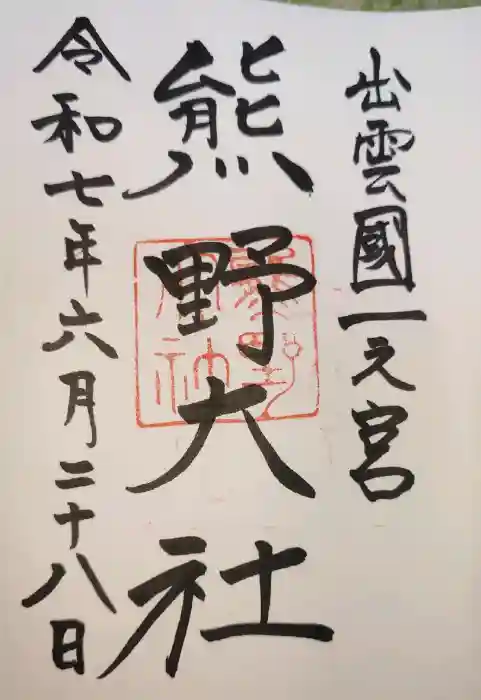 出雲國一之宮
熊野大社
令和七年六月二十八日